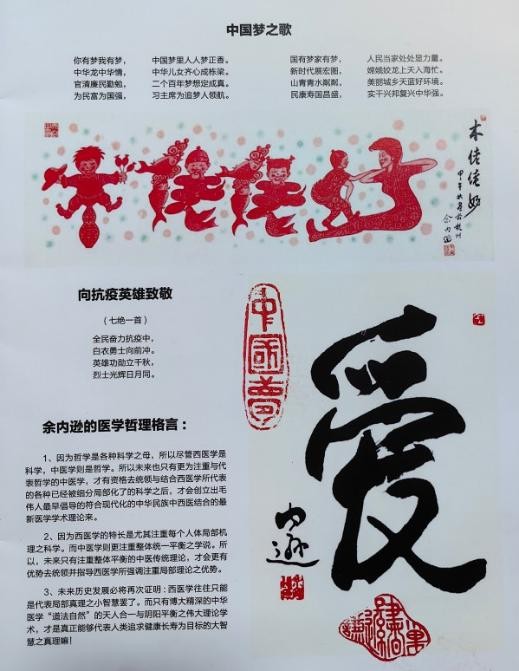 中国梦之歌
你有梦我有梦， 中国梦里人人梦正香。 国有梦家有梦， 人民当家处处显力量。
中华龙中华情， 中华儿女齐心成栋梁。 新时代展宏图， 嫦娥蛟龙上天入海忙。
官清廉民勤勉， 二个百年梦想定成真。 山青青水粼粼， 美丽城乡天蓝环境优。
为民富为国强， 习主席为追梦人领航。 民康寿国昌盛， 实干兴邦复兴中华强。
木佬佬好
甲午
余内逊
向抗疫英雄致敬
（七绝一首）
全民奋力抗疫中，
白衣勇士向前冲。
英雄功勋立千秋，
烈士光辉日月同。
中國夢
爱
内逊
余内逊的医学哲理格言：
1、因为哲学是各种科学之母，所以尽管西医学是
科学，中医学则是哲学。所以未来也只有更为注重与代
表哲学的中医学，才有资格去统领与结合西医学所代表
的各种已经被细分局部化了的科学之后，才会创立出毛
伟人最早倡导的符合现代化的中华民族中西医结合的最
新医学学术理论来。
2、因为西医学的特长是尤其注重每个人体局部机
理之科学。而中医学则更注重整体统一平衡之学说。所
以，未来只有注重整体平衡的中医传统理论，才会更有
优势去统领并指导西医学所强调注重局部理论之优势。
3、未来历史发展必将再次证明：西医学往往只能
是代表局部真理之小智慧罢了。而只有博大精深的中华
医学“道法自然”的天人合一与阴阳平衡之伟大理论学
术，才是真正能够代表人类追求健康长寿为目标的大智
慧之真理嘛！